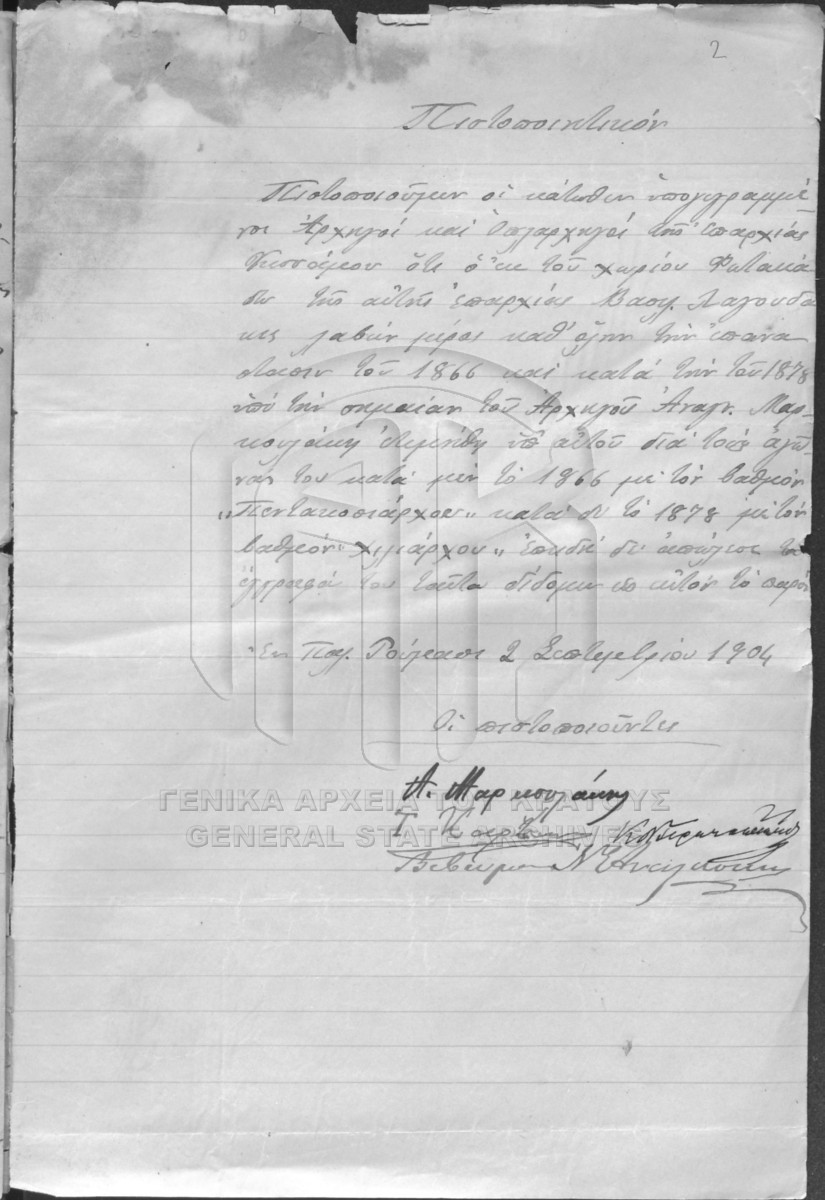 2
Πιστοποιητικόν
Πιστοποιοῦμεν οἱ κάτωθεν ὑπογεγραμμέ
νοι Ἀρχηγοί καὶ Ὁπλαρχηγοί τῆς Ἐπαρχίας
Κισσάμου ὅτι ὁ ἐκ τοῦ χωρίου Φωτακά
δω τῆς αὐτῆς ἐπαρχίας Βασιλ. Λαγουδά
κις λαβών μέρος καθ' ὅλην τὴν ἐπανα
στασιν τοῦ 1866 καὶ κατά τὴν τοῦ 1878
ὑπό τὴν σημαίαν τοῦ Ἀρχηγοῦ Ἀναγν. Μαρ
κουλάκη ἐτιμήθη ὑπ' αὐτοῦ διά τούς ἀγῶ
νας του κατά μέν τὸ 1866 μὲ τὸν βαθμόν
„Πεντακοσιάρχου„ κατά δὲ τὸ 1878 μὲ τόν
βαθμόν „Χιλιάρχου„ ἐπειδή δὲ ἀπώλεσε τά
ἔγγραφά του ταῦτα δίδομεν εἰς αὐτόν τὸ παρόν
Ἐν Παλ. Ρούματα 2 Σεπτεμβρίου 1904
Οἱ πιστοποιοῦντες
Α. Μαρκουλάκης
ΓΕΝΙΚΑ ΑΡΧΕΙΑ ΤΟΥ ΚΡΑΤΟΥΣ
GENERAL STATE ARCHIVES